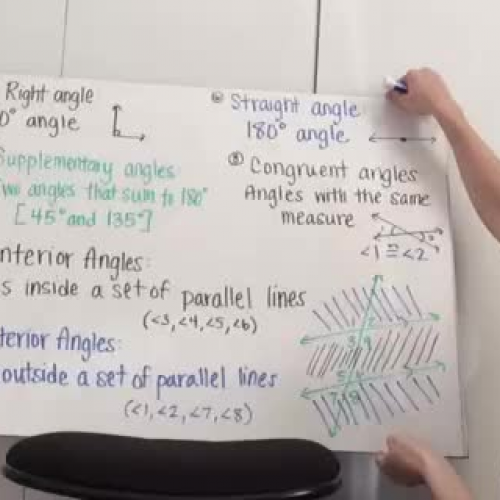 Right angle
0° angle
Supplementary angles:
Two angles that sum to 180°
[45° and 135°]
nterior Angles:
s inside a set of parallel lines
(<3, <4, <5, <6)
terior Angles:
outside a set of parallel lines
(<1, <2, <7, <8)
Straight angle:
180° angle
⑧ Congruent angles
Angles with the same
measure
1 2
<1 ≅ <2
2
3 4
5 6
7 8